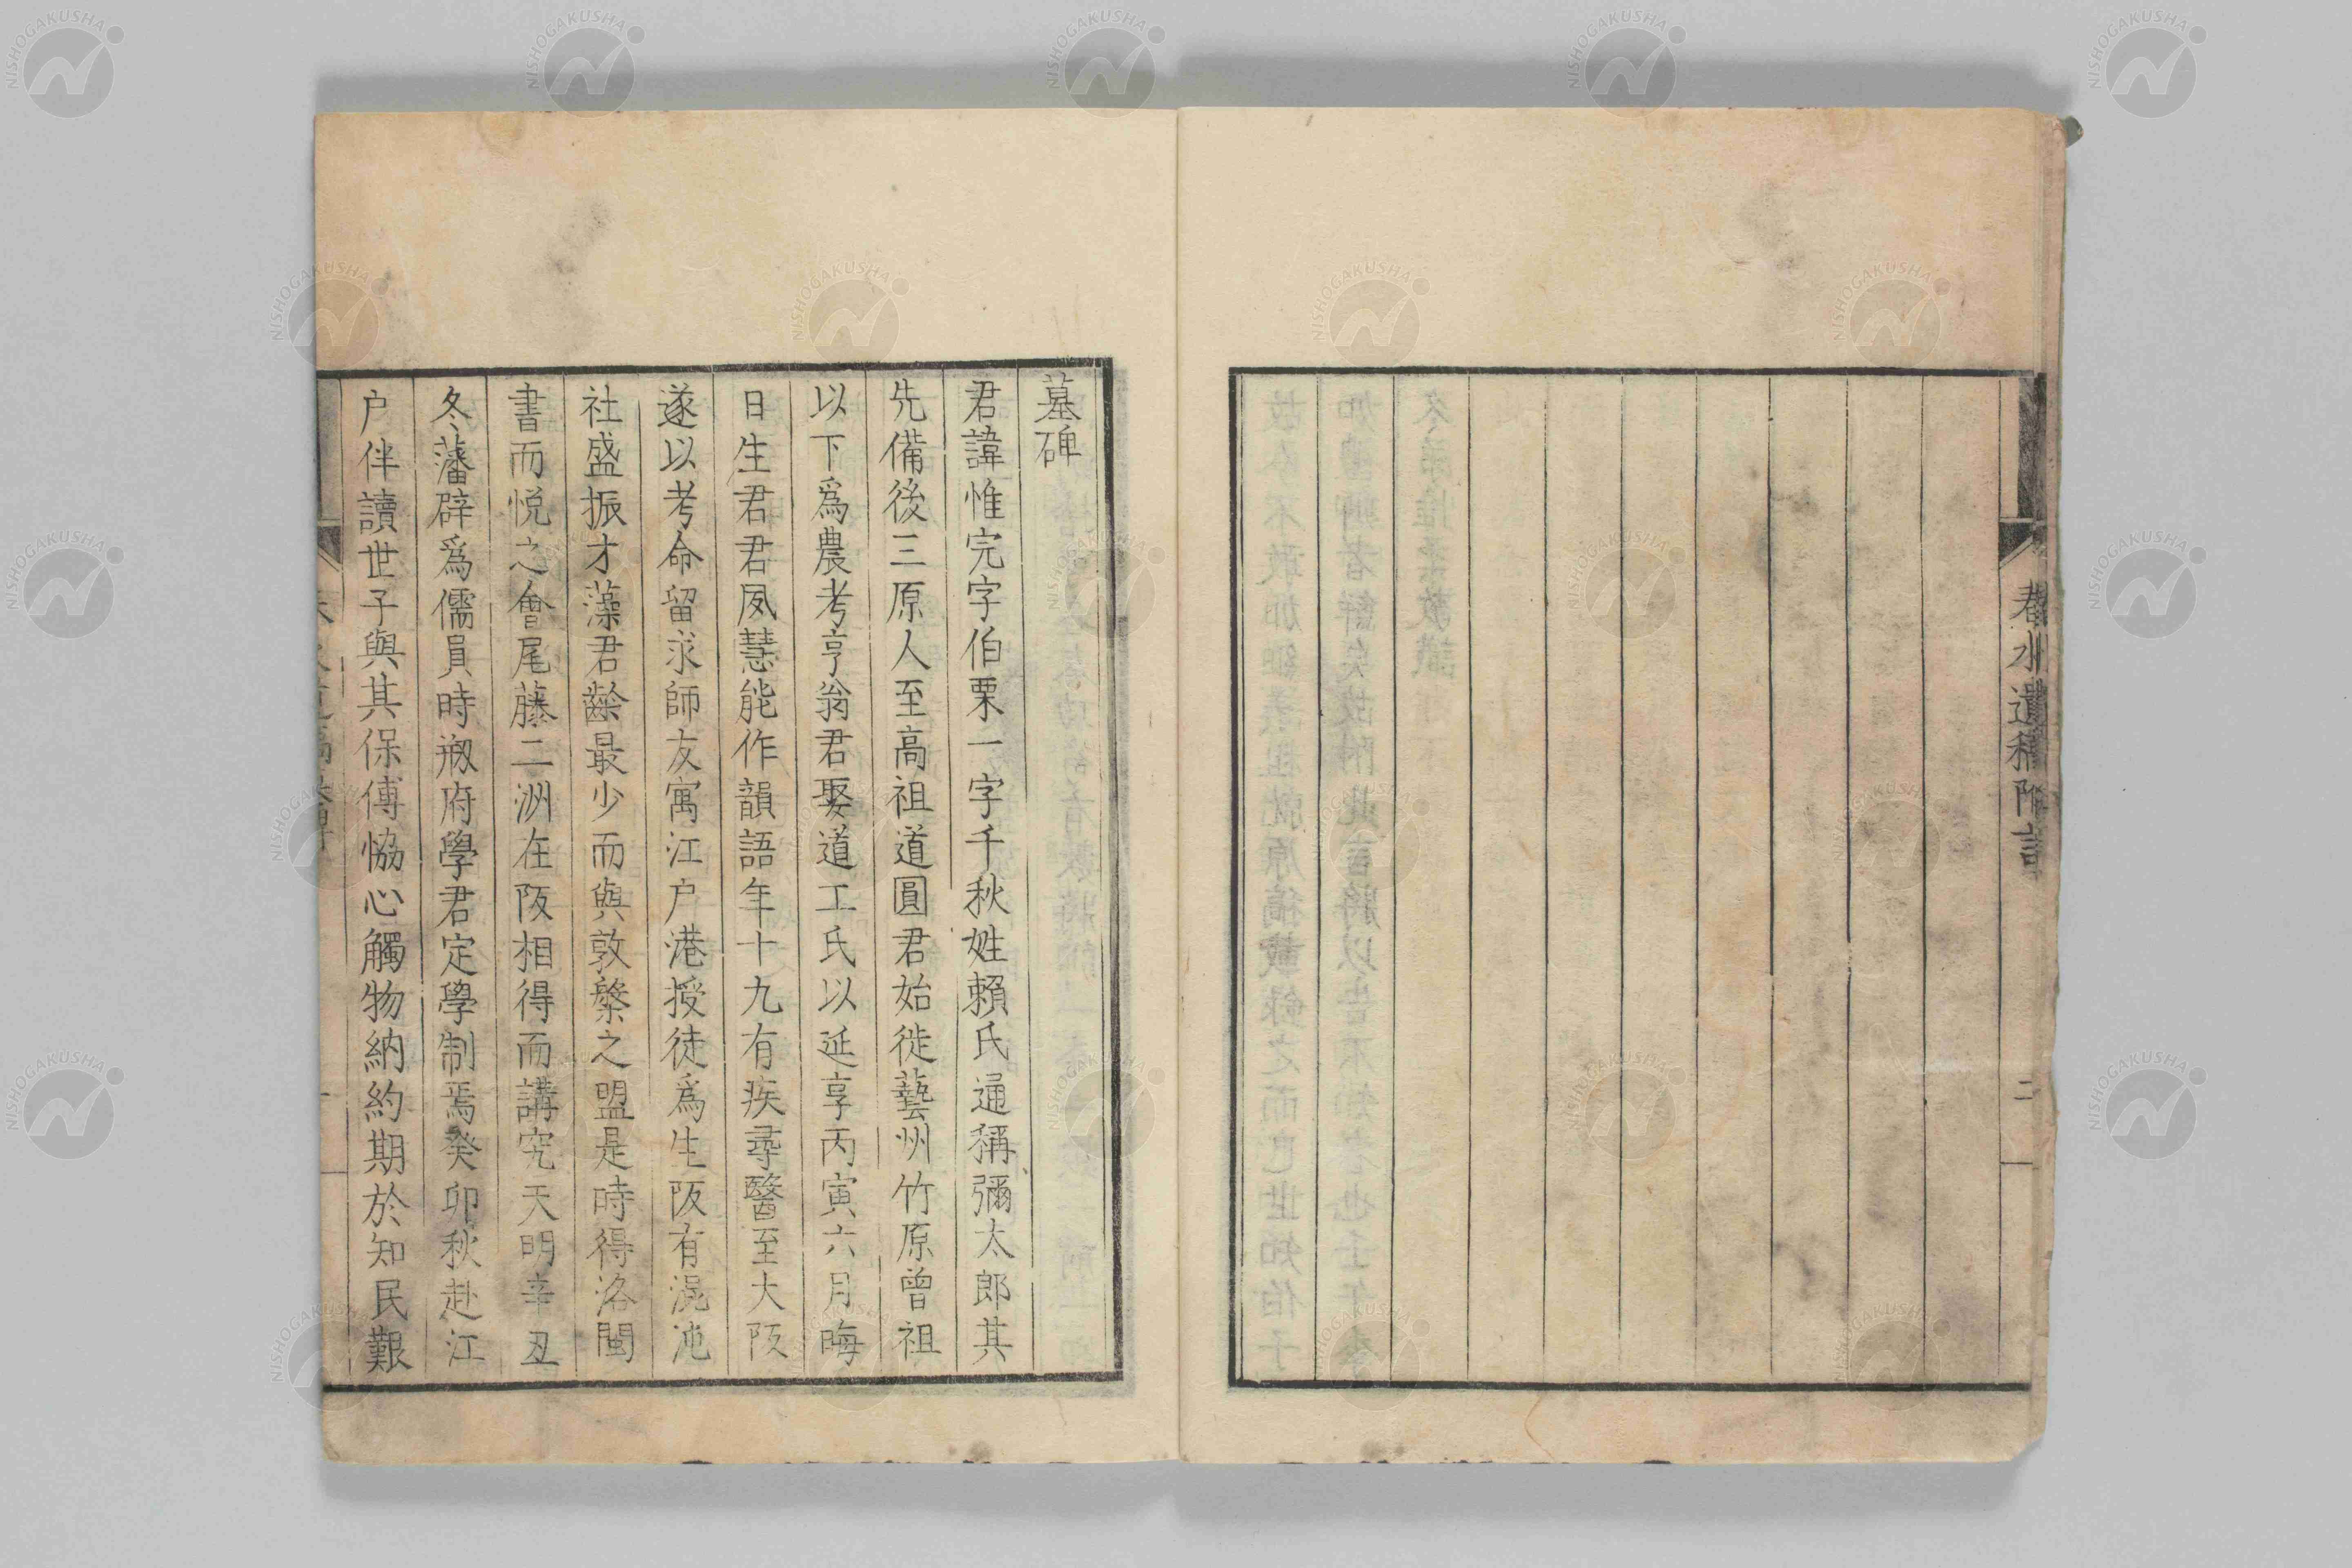 春水遺稿附言
二
墓碑
君諱惟完字伯栗一字千秋姓賴氏通稱彌太郎其
先備後三原人至高祖道圓君始徙藝州竹原曾祖
以下爲農考亨翁君娶道工氏以延享丙寅六月晦
日生君君夙慧能作韻語年十九有疾尋醫至大阪
遂以考命留求師友寓江戶港授徒爲生阪有混沌
社盛振才藻君齡最少而與敦槃之盟是時得洛閩
書而悅之會尾藤二洲在阪相得而講究天明辛丑
冬藩辟爲儒員時剏府學君定學制焉癸卯秋赴江
戶伴讀世子與其保傅恊心觸物納約期於知民艱
NISHOGAKUSHA